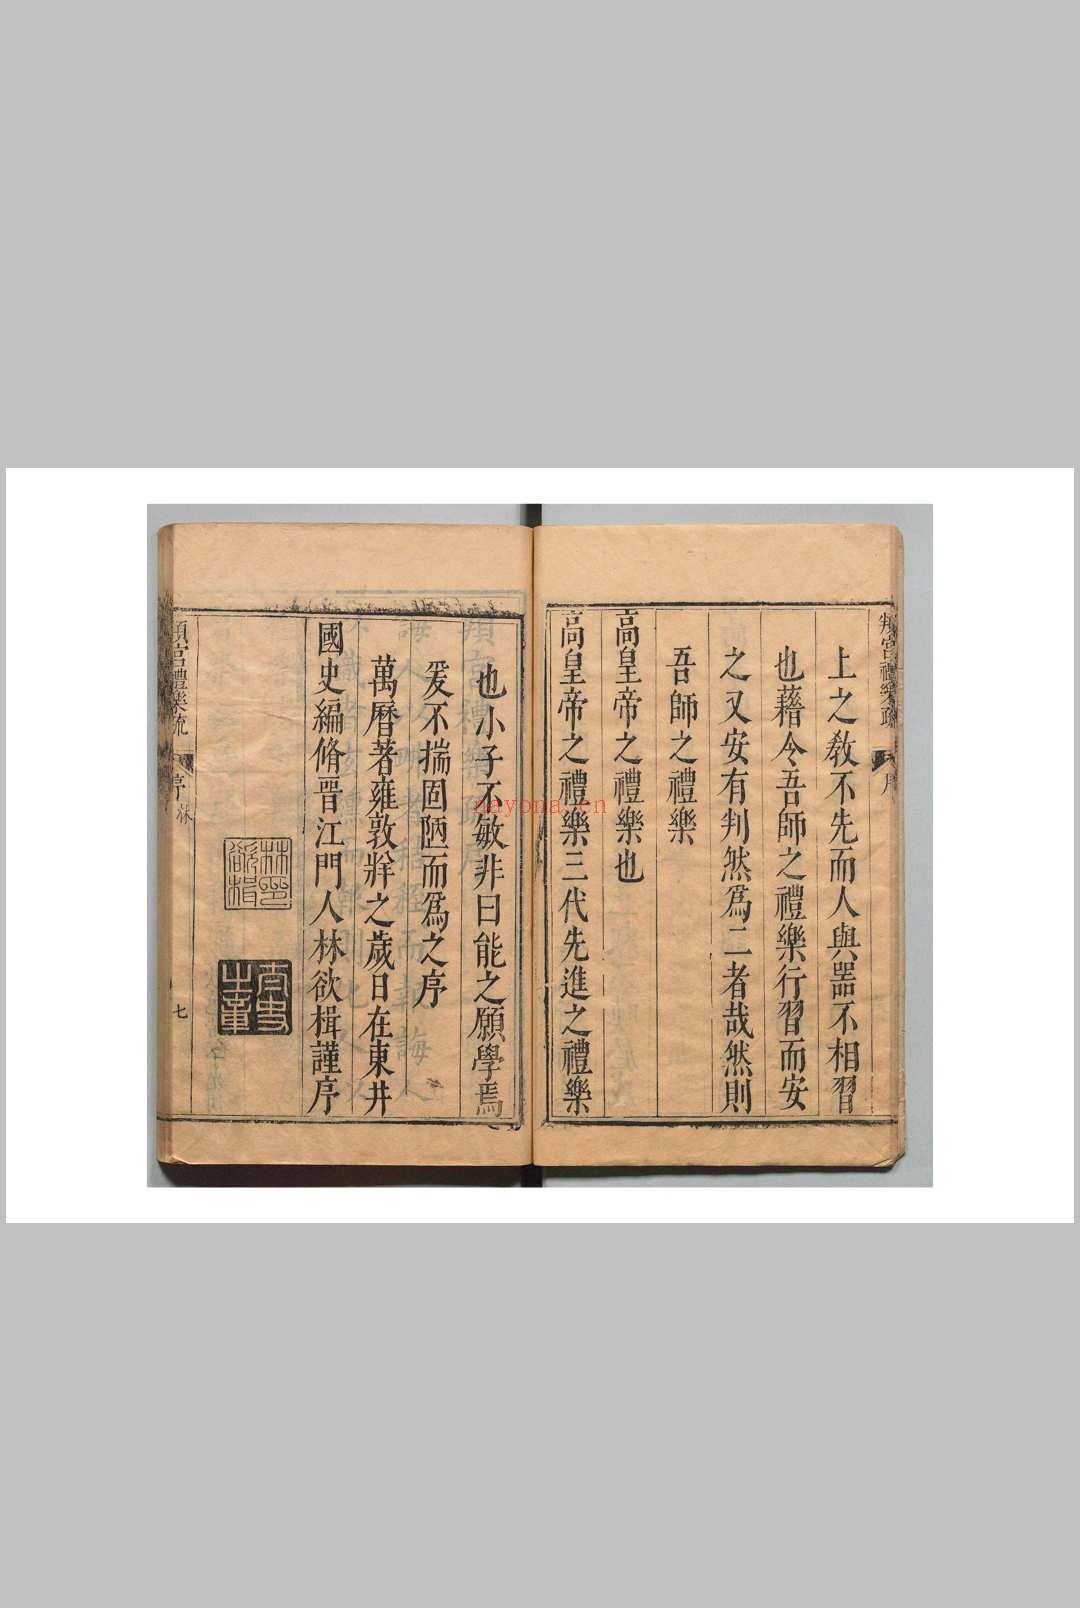 上之教不先而人與器不相習
也藉今吾師之禮樂行習而安
之又安有判然爲二者哉然則
吾師之禮樂
高皇帝之禮樂也
高皇帝之禮樂三代先進之禮樂
也小子不敏非曰能之願學焉
爰不揣固陋而爲之序
萬曆著雍敦牂之歲日在東井
國史編脩晉江門人林欲楫謹序
林印欲楫
頖宮禮樂疏
序
林
七
頖宮禮樂疏
序
nayona.cn